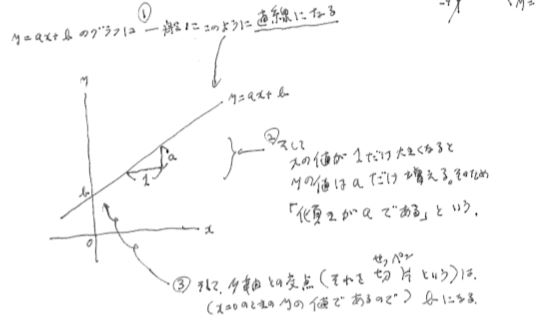 ①
y=ax+b のグラフは 一般に このように 直線になる
y
y=ax+b
a
1
b
0
x
② そして
xの値が 1だけ 大きくなると
yの値は aだけ 増える。そのため
「傾きが a である」という。
せっぺん
③ そして、y軸との交点(それを 切片 という)は、
(x=0のときの yの値であるので) b になる。